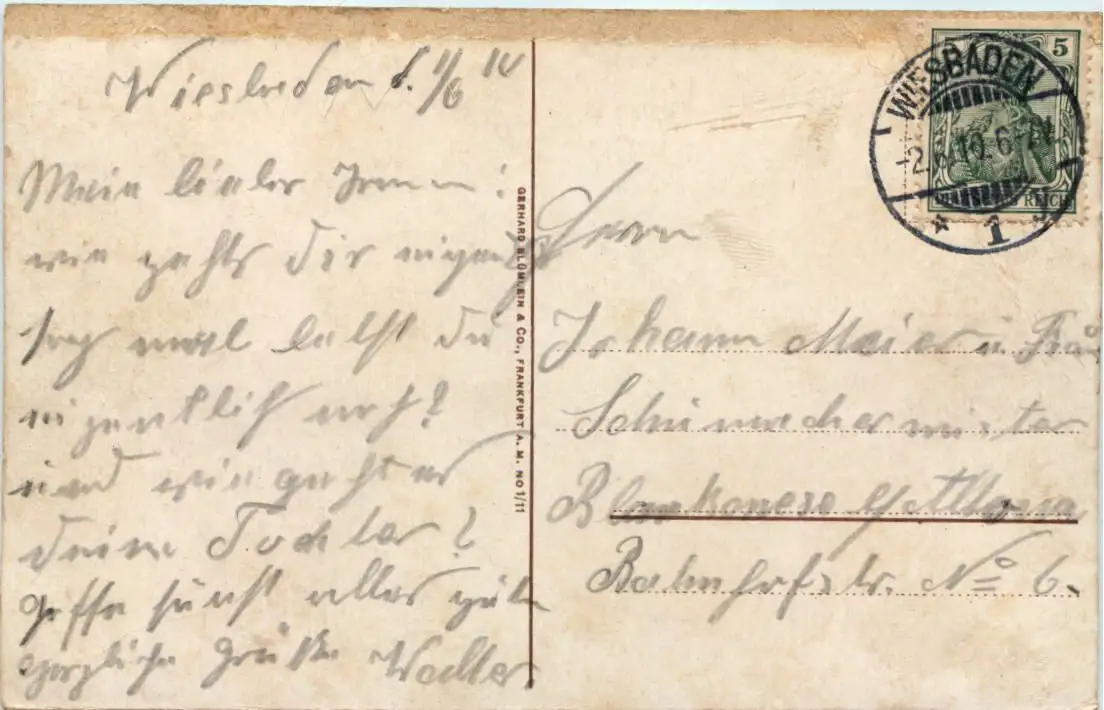 Wiesbaden d. 1/6 10
Mein lieber
wie gehts dir
sag mal lebst du
eigentlich noch?
und wie geht es
deine Tochter?
Hoffe sonst alles gute
Herzliche Grüße Walter
GERHARD BLÜMLEIN & CO., FRANKFURT A. M. NO 1/11
5
WIESBADEN
-2.6.10.6-7N.
* 1 *
REICH
Herrn
Johann Maier u. Frau
Schumachermeister
Blankenese b/Altona
Bahnhofstr. No 6.